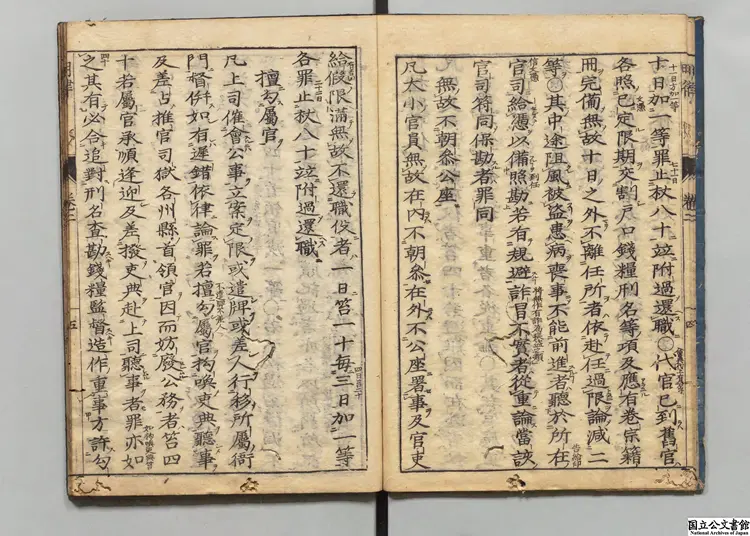 十日加一等罪止杖八十竝附過還職○代官已到舊官
各照已定限期交割戸口錢糧刑名等項及應有卷宗籍
冊完備無故十日之外不離任所者依赴任過限論減二
等○其中途阻風被盗患病喪事不能前進者聽於所在
官司給憑以備照勘若有規避詐冒不實者從重論當該
官司符同保勘者罪同
無故不朝參公座
凡大小官員無故在内不朝參在外不公座署事及官吏
給假限滿無故不還職役者一日笞一十毎三日加一等
各罪止杖八十竝附過還職
擅勾屬官
凡上司催會公事立案定限或遣牌或差人行移所屬衙
門督併如有遲錯依律論罪若擅勾屬官拘喚吏典聽事
及差占推官司獄各州縣首領官因而妨廢公務者笞四
十若屬官承順逢迎及差撥吏典赴上司聽事者罪亦如
之其有必合追對刑名查勘錢糧監督造作重事方許勾
国立公文書館
National Archives of Japan